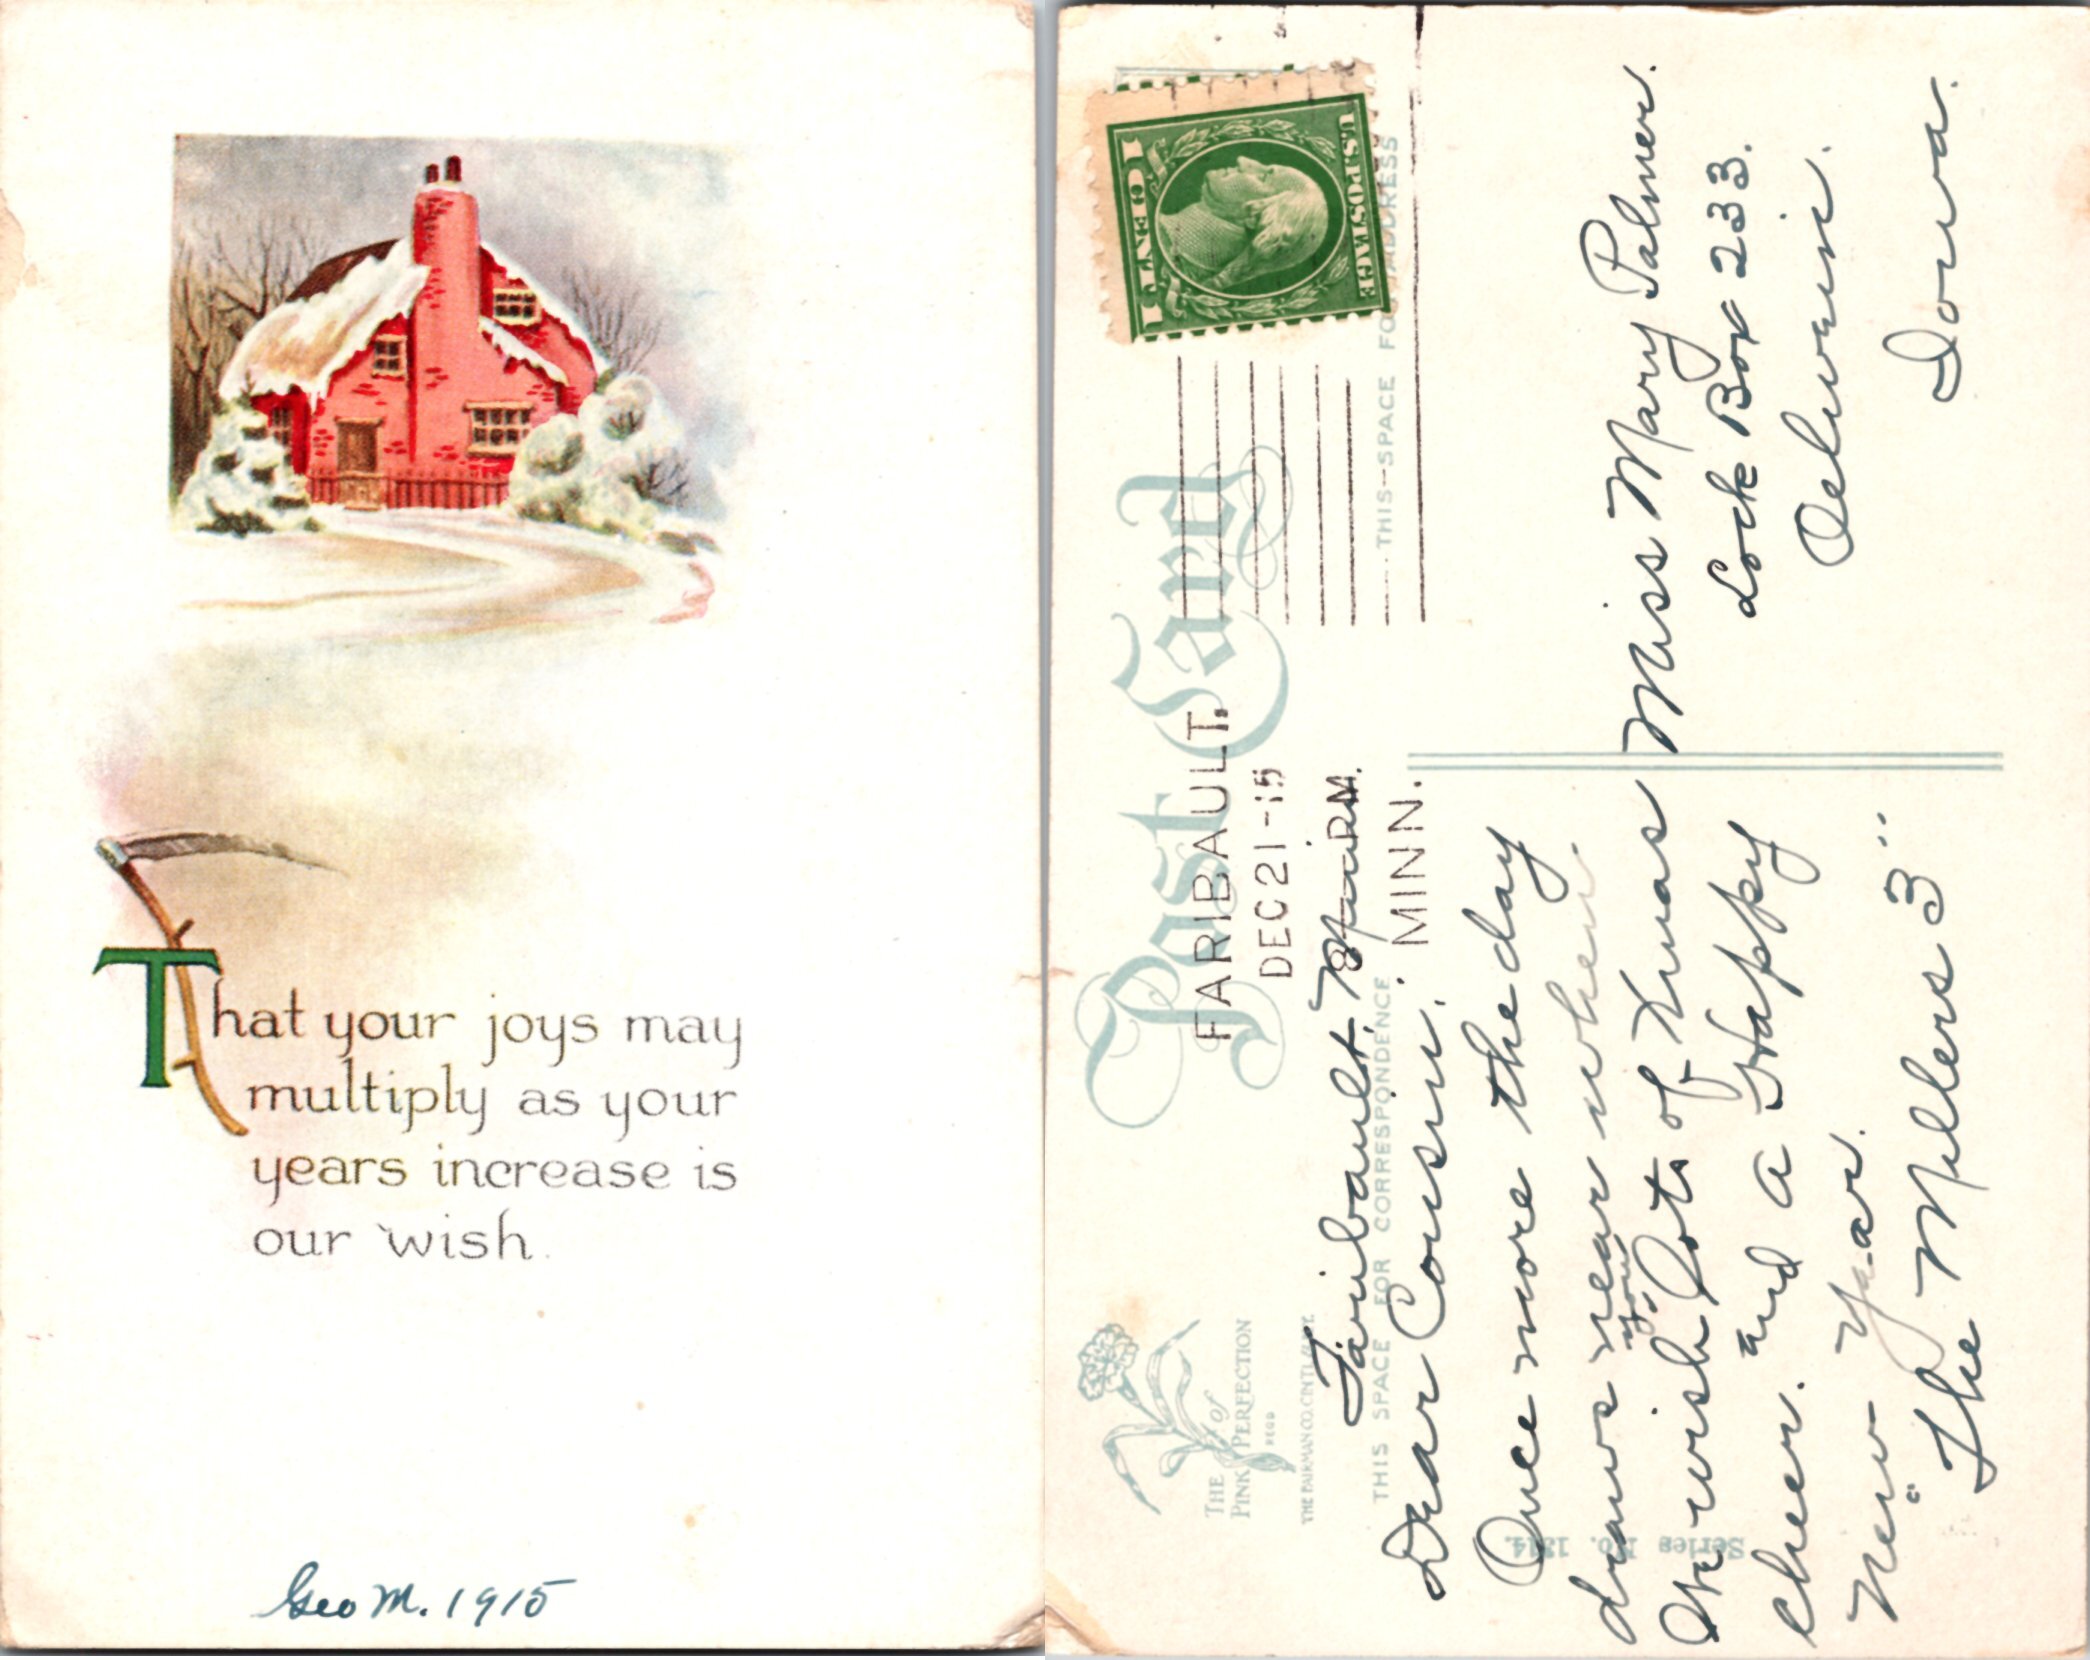 That your joys may
multiply as your
years increase is
our wish.
Geo M. 1915
THE PINK of PERFECTION
REGD
THE FAIRMAN CO. CINTI. & N.Y.
Post Card
THIS SPACE FOR CORRESPONDENCE
THIS SPACE FOR ADDRESS
Series No. 1814.
U.S. POSTAGE
1 CENT 1
FARIBAULT.
DEC 21 -15
8 - PM
MINN.
Faribault, Minn.
Dear Cousin:
Once more the day
draws near when
We wish you Lots of Xmas
cheer. and a Happy
New Year.
The Millers 3
Miss Mary Palmer.
Lock Box 233.
Oelwein.
Iowa.